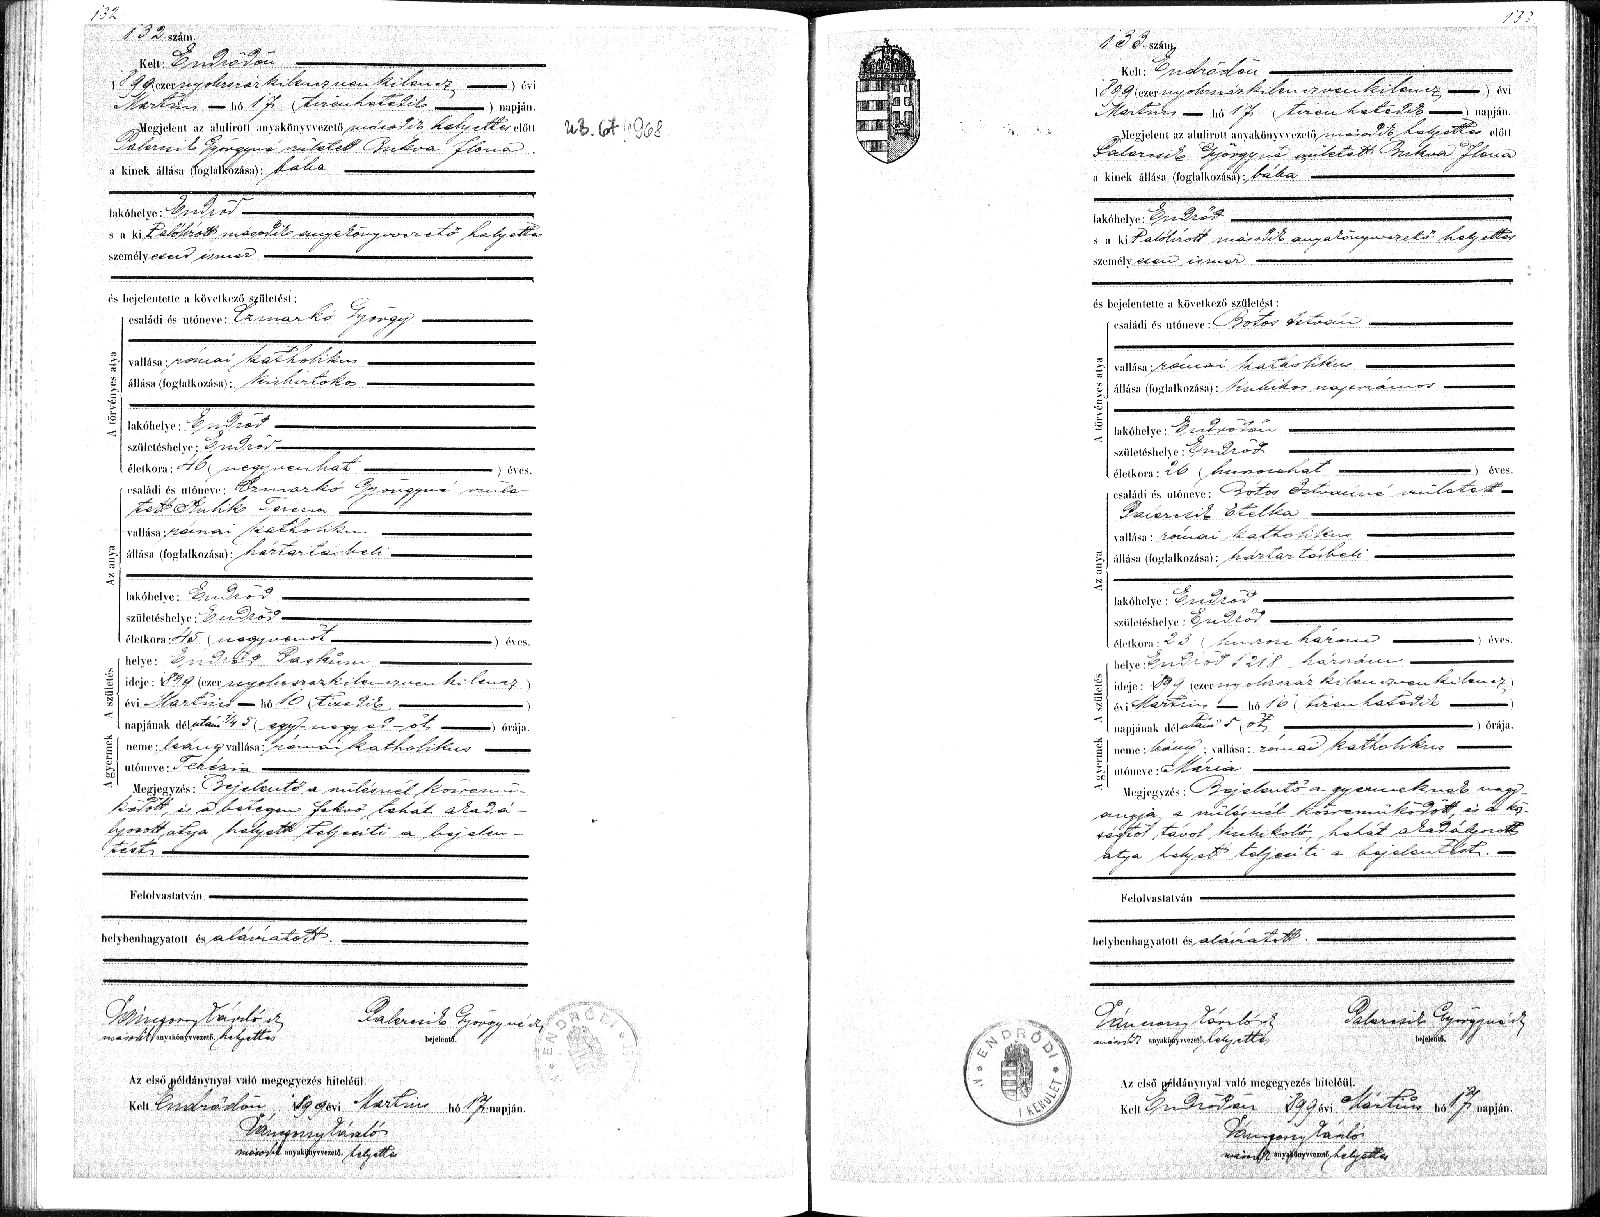 132
132 szám.
Kelt: Endrődön
1899 (ezernyolcszázkilenczvenkilencz) évi
Martius hó 17 (tizenhetedik) napján.
Megjelent az alulirott anyakönyvvezető második helyettes előtt
Palercsik Györgyné született Bukva Ilona
a kinek állása (foglalkozása): bába
lakóhelye: Endrőd
s a kit alólirott második anyakönyvvezető helyettes
személyesen ismer
és bejelentette a következő születést:
A törvényes atya
családi és utóneve: Czmarkó György
vallása: római katholikus
állása (foglalkozása): kisbirtokos
lakóhelye: Endrőd
születéshelye: Endrőd
életkora: 46 (negyvenhat) éves.
Az anya
családi és utóneve: Czmarkó Györgyné szüle-
tett Terézia
vallása: római katholikus
állása (foglalkozása): háztartásbeli
lakóhelye: Endrőd
születéshelye: Endrőd
életkora: 45 (negyvenöt) éves.
A születés
helye: Endrőd Paskum
ideje: 899 (ezernyolcszázkilenczvenkilencz)
évi Martius hó 10 (tizedik)
napjának délután 1/4 5 (egy negyed öt) órája.
A gyermek
neme: leány vallása: római katholikus
utóneve: Terézia
Megjegyzés: Bejelentő a szülésnél közremü-
ködött, és a betegen fekvő tehát akadá-
lyozott atya helyett teljesiti a bejelen-
tést
Felolvastatván
helybenhagyatott és aláiratott.
Palercsik Györgyné
második anyakönyvvezető helyettes bejelentő.
ENDRŐDI
Az első példánynyal való megegyezés hiteléül.
Kelt Endrődön, 899 évi Martius hó 17 napján.
második anyakönyvvezető helyettes
1968
133
133 szám.
Kelt: Endrődön
1899 (ezernyolcszázkilenczvenkilencz) évi
Martius hó 17 (tizenhetedik) napján.
Megjelent az alulirott anyakönyvvezető második helyettes előtt
Palercsik Györgyné született Bukva Ilona
a kinek állása (foglalkozása): bába
lakóhelye: Endrőd
s a kit alólirott második anyakönyvvezető helyettes
személyesen ismer
és bejelentette a következő születést:
A törvényes atya
családi és utóneve: Botos István
vallása: római katholikus
állása (foglalkozása): kubikos napszámos
lakóhelye: Endrődön
születéshelye: Endrőd
életkora: 26 (huszonhat) éves.
Az anya
családi és utóneve: Botos Istvánné született
Palercsik Etelka
vallása: római katholikus
állása (foglalkozása): háztartásbeli
lakóhelye: Endrőd
születéshelye: Endrőd
életkora: 23 (huszonhárom) éves.
A születés
helye: Endrőd 1218 házszám
ideje: 899 (ezernyolcszázkilenczvenkilencz)
évi Martius hó 16 (tizenhatodik)
napjának délután 5 (öt) órája.
A gyermek
neme: leány; vallása: római katholikus
utóneve: Mária
Megjegyzés: Bejelentő a gyermeknek nagy-
anyja, a szülésnél közremüködött, és a köz-
ségtől távol kubikoló, tehát akadályozott
atya helyett teljesiti a bejelentést.
Felolvastatván
helybenhagyatott és aláiratott.
Palercsik Györgyné
második anyakönyvvezető helyettes bejelentő.
ENDRŐDI
I KERÜLET
Az első példánynyal való megegyezés hiteléül.
Kelt Endrődön 899 évi Mártius hó 17 napján.
második anyakönyvvezető helyettes